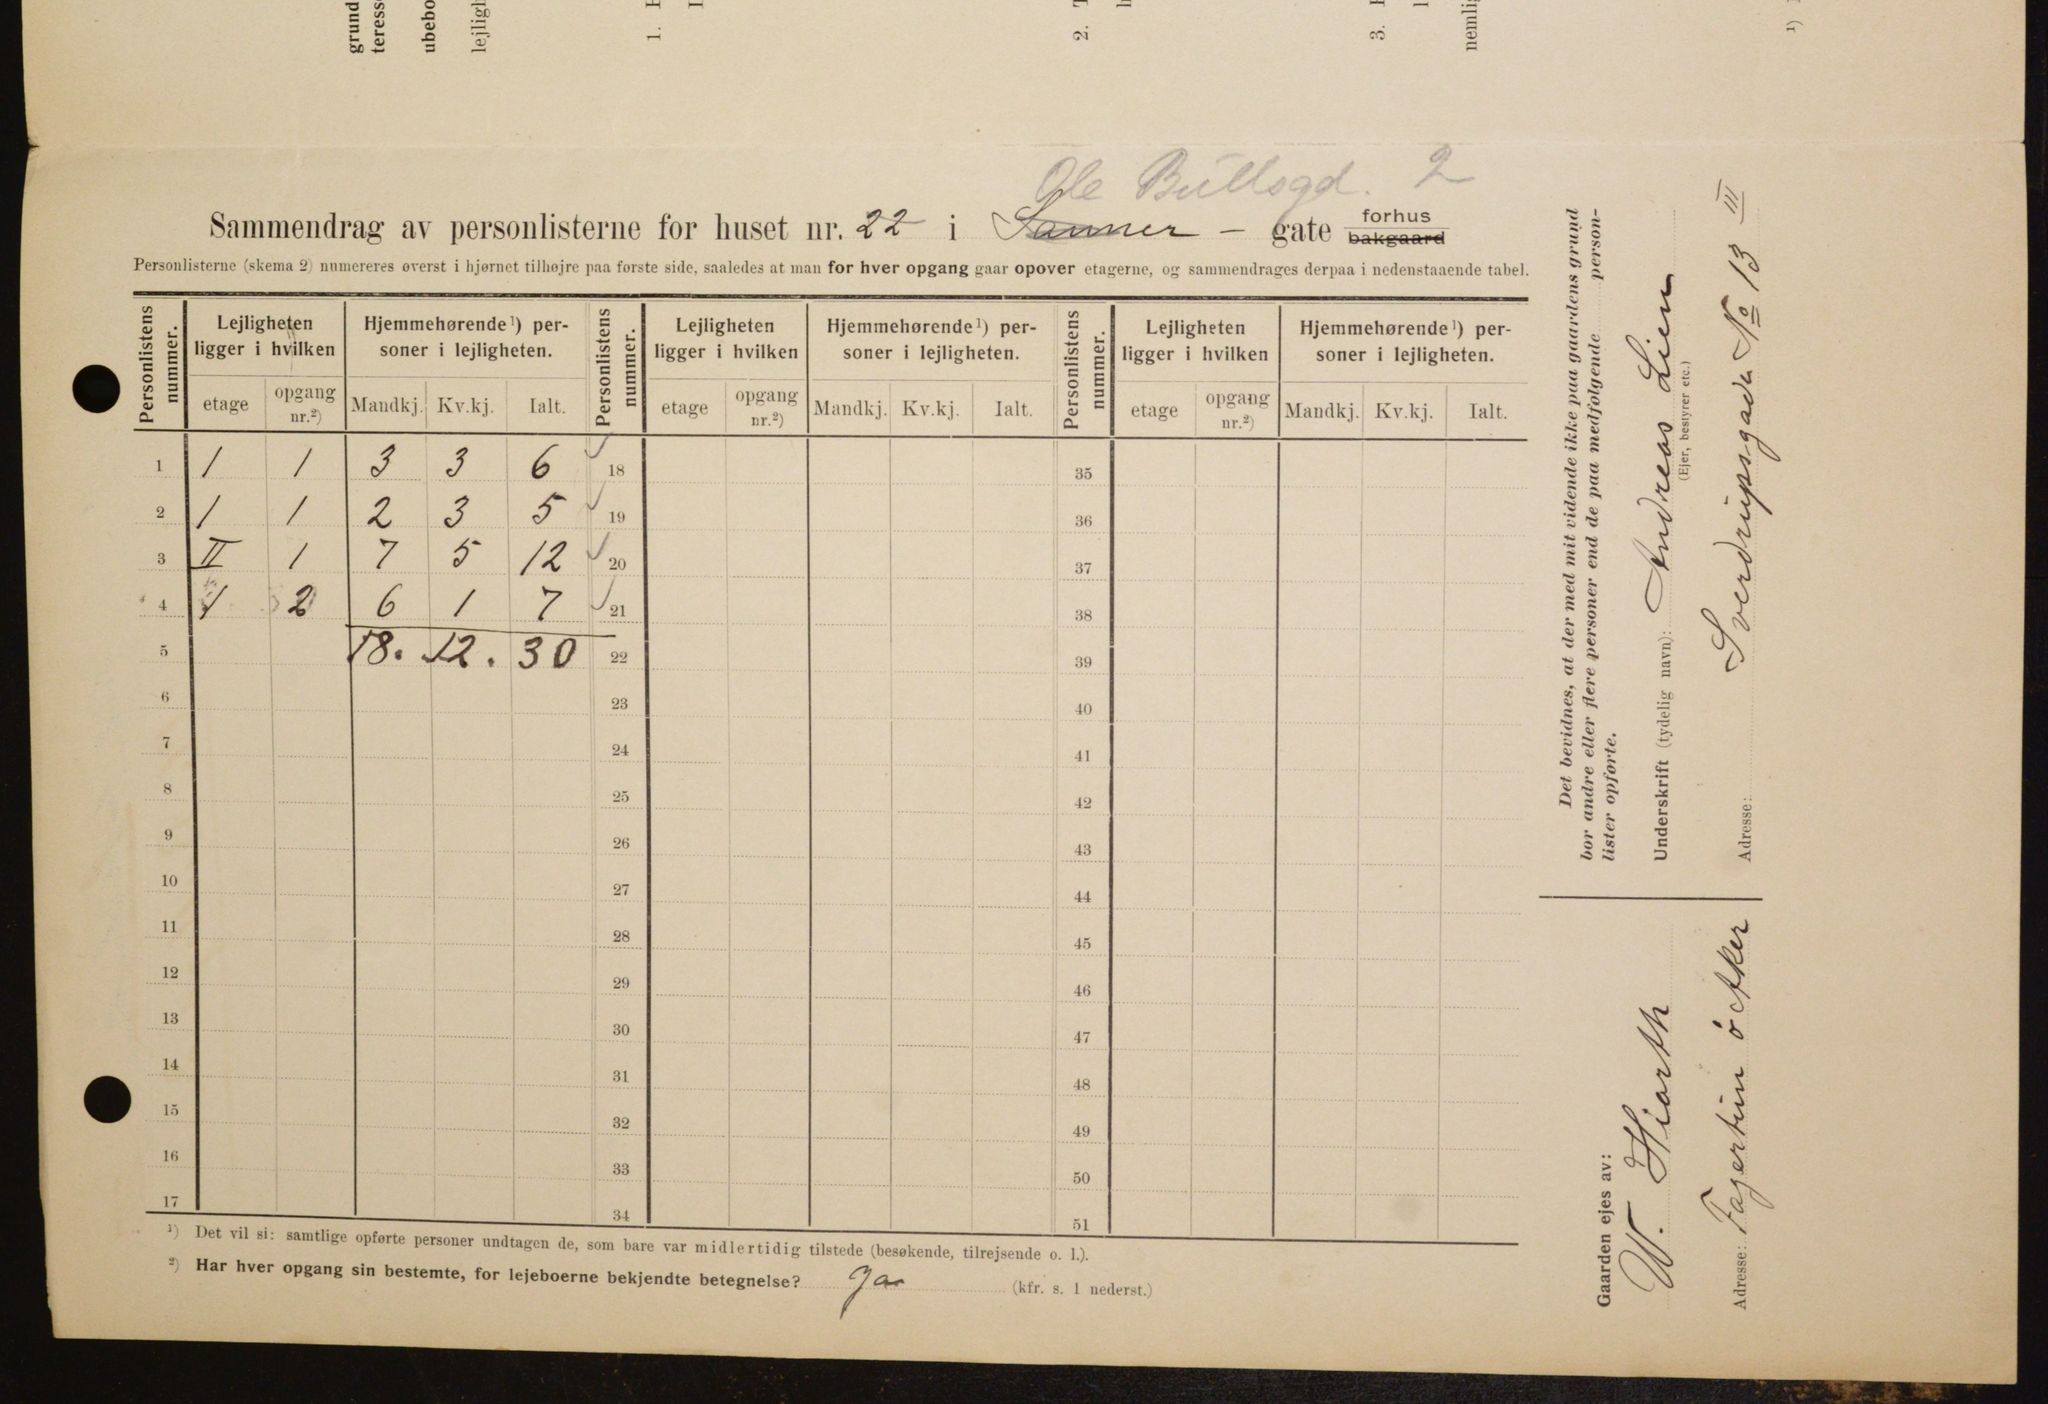 grund
teresse
ubebo
lejligh
1.
2.
3.
nemlig
¹)
Ole Bullsgd. 2
Sammendrag av personlisterne for huset nr. 22 i Sanner - gate forhus bakgaard
Personlisterne (skema 2) numereres øverst i hjørnet tilhøjre paa første side, saaledes at man for hver opgang gaar opover etagerne, og sammendrages derpaa i nedenstaaende tabel.
Personlistens nummer. Lejligheten ligger i hvilken Hjemmehørende¹) personer i lejligheten. Personlistens nummer. Lejligheten ligger i hvilken Hjemmehørende¹) personer i lejligheten. Personlistens nummer. Lejligheten ligger i hvilken Hjemmehørende¹) personer i lejligheten.
etage opgang nr.²) Mandkj. Kv.kj. Ialt. etage opgang nr.²) Mandkj. Kv.kj. Ialt. etage opgang nr.²) Mandkj. Kv.kj. Ialt.
1 1 1 3 3 6 18 35
2 1 1 2 3 5 19 36
3 II 1 7 5 12 20 37
4 1 2 6 1 7 21 38
5 18. 12. 30 22 39
6 23 40
7 24 41
8 25 42
9 26 43
10 27 44
11 28 45
12 29 46
13 30 47
14 31 48
15 32 49
16 33 50
17 34 51
¹) Det vil si: samtlige opførte personer undtagen de, som bare var midlertidig tilstede (besøkende, tilrejsende o. l.).
²) Har hver opgang sin bestemte, for lejeboerne bekjendte betegnelse? Ja (kfr. s. 1 nederst.)
Det bevidnes, at der med mit vidende ikke paa gaardens grund
bor andre eller flere personer end de paa medfølgende personlister opførte.
Underskrift (tydelig navn): Andreas Lien
(Ejer, bestyrer etc.)
Adresse: Sverdrupsgade No 13 III
Gaarden ejes av:
W. Hiorth
Adresse: Fagertun ö Aker